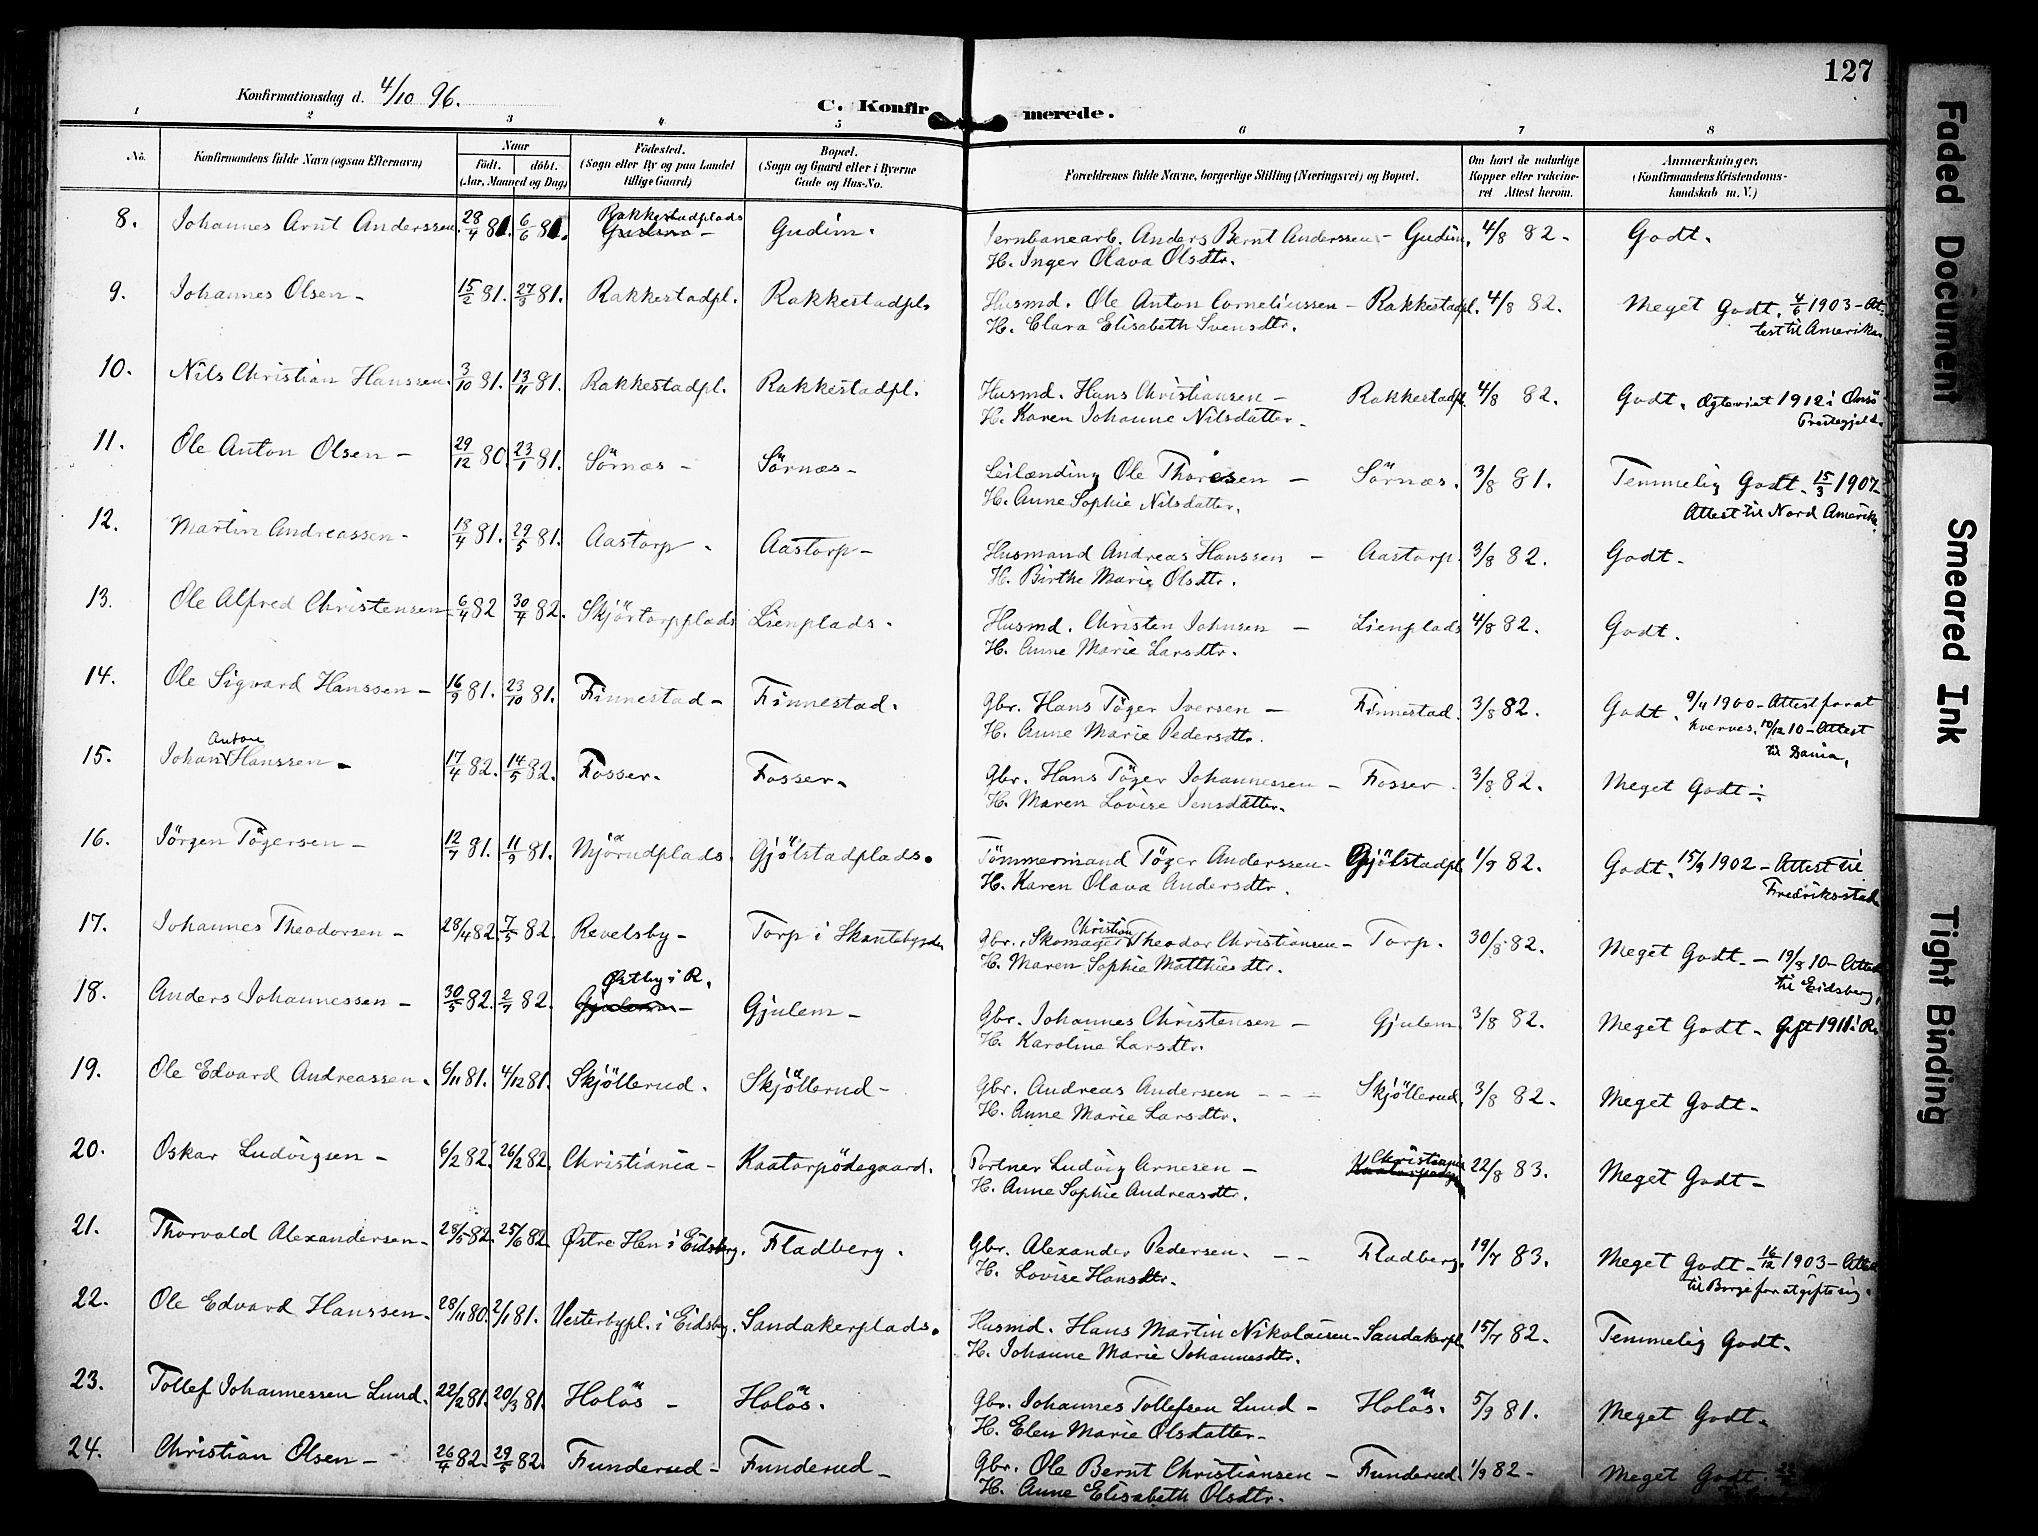 127
Konfirmationsdag d. 4/10 96.
C. Konfirmerede.
1 2 3 4 5 6 7 8
No.
Konfirmandens fulde Navn (ogsaa Efternavn)
Naar
födt. döbt.
(Aar, Maaned og Dag)
Födested.
(Sogn eller By og paa Landet
tillige Gaard)
Bopæl.
(Sogn og Gaard eller i Byerne
Gade og Hus-No.
Forældrenes fulde Navne, borgerlige Stilling (Næringsvei) og Bopæl.
Om havt de naturlige
Kopper eller vakcine-
ret Attest herom.
Anmærkninger.
(Konfirmandens Kristendoms-
kundskab m. V.)
8. Johannes Arnt Anderssen. 28/4 81. 6/6 81. Rakkestadplads Gudim. Jernbanearb. Anders Bernt Anderssen - Gudim. 4/8 82. Godt.
H. Inger Olava Olsdtr.
9. Johannes Olsen 15/2 81. 27/3 81. Rakkestadpl. Rakkestadpl. Husmd. Ole Anton Corneliussen - Rakkestadpl. 4/8 82. Meget Godt. 4/6 1903 - At-
H. Clara Elisabeth Svensdtr. test til Amerika
10. Nils Christian Hanssen. 3/10 81. 13/11 81. Rakkestadpl. Rakkestadpl. Husmd. Hans Christiansen - Rakkestadpl. 4/8 82. Godt. Ægteviet 1912 i Onsö
H. Karen Johanne Nilsdatter. Prestegjeld.
11. Ole Anton Olsen - 29/12 80. 23/1 81. Sörnæs - Sörnæs - Leilænding Ole Thoresen - Sörnæs. 3/8 81. Temmelig Godt. 15/3 1907
H. Anne Sophie Nilsdatter. Attest til Nord Amerika.
12. Martin Andreassen - 13/4 81. 29/5 81. Aastorp. Aastorp - Husmand Andreas Hanssen - Aastorp. 3/8 82. Godt.
H. Birthe Marie Olsdtr.
13. Ole Alfred Christensen 6/4 82 30/4 82. Skjörtorpplads Lienplads. Husmd. Christen Johnsen - Lienplads 4/8 82. Godt.
H. Anne Marie Larsdtr.
14. Ole Sigvard Hanssen - 16/9 81. 23/10 81. Finnestad - Finnestad. Gbr. Hans Töger Iversen - Finnestad. 3/8 82. Godt. 9/4 1900 - Attest for at
H. Anne Marie Pedersdtr. hverves. 10/12 10 - Attest
til Dania,
Anton
15. Johan Hanssen - 17/4 82. 14/5 82. Fosser. Fosser. Gbr. Hans Töger Johannessen - Fosser. 3/8 82. Meget Godt ÷
H. Maren Lovise Jensdatter.
16. Jörgen Tögersen - 12/7 81. 11/9 81. Mjörudplads. Gjölstadplads. Tömmermand Töger Anderssen - Gjölstadpl. 1/9 82. Godt. 15/9 1902 - Attest til
H. Karen Olava Andersdtr. Fredriksstad
17. Johannes Theodorsen - 28/4 82. 7/5 82. Revelsby - Torp i Skantebygden Gbr. Skomager Christian Theodor Christiansen - Torp. 30/8 82. Meget Godt. - 19/8 10 - Attest
H. Maren Sophie Matthiesdtr. til Eidsberg.
18. Anders Johannessen - 30/5 82. 2/7 82. Østby i R. Gjulem Gjulem - Gbr. Johannes Christensen - Gjulem 3/8 82. Meget Godt - Gift 1911 i R.
H. Karoline Larsdtr.
19. Ole Edvard Andreassen. 6/11 81. 4/12 81. Skjöllerud. Skjöllerud - Gbr. Andreas Andersen - - - Skjöllerud. 3/8 82. Meget Godt -
H. Anne Marie Larsdtr.
20. Oskar Ludvigsen - 6/2 82. 26/2 82. Christiania - Kaatorpödegaard. Portner Ludvig Arnesen - Christiania 22/8 83. Meget Godt -
H. Anne Sophie Andreasdtr.
21. Thorvald Alexandersen - 28/5 82. 25/6 82. Østre Hen i Eidsberg. Fladberg. Gbr. Alexander Pedersen. - - Fladberg. 19/7 83. Meget Godt - 16/12 1903 - Attest
H. Lovise Hansdtr. til Borge for at gifte sig.
22. Ole Edvard Hanssen. 28/11 80. 2/1 81. Vesterbypl. i Eidsby. Sandakerplads. Husmd. Hans Martin Nikolaisen - Sandakerpl. 15/7 82. Temmelig Godt.
H. Johanne Marie Johannesdtr.
23. Tollef Johannessen Lund. 22/2 81. 20/3 81. Holös - Holös. Gbr. Johannes Tollefsen Lund - Holös. 5/9 81. Meget Godt -
H. Elen Marie Olsdatter -
24. Christian Olsen - 26/4 82. 29/5 82. Funderud - Funderud - Gbr. Ole Bernt Christiansen - Funderud. 1/9 82 - Meget Godt.
H. Anne Elisabeth Olsdtr.
Faded Document
Smeared Ink
Tight Binding